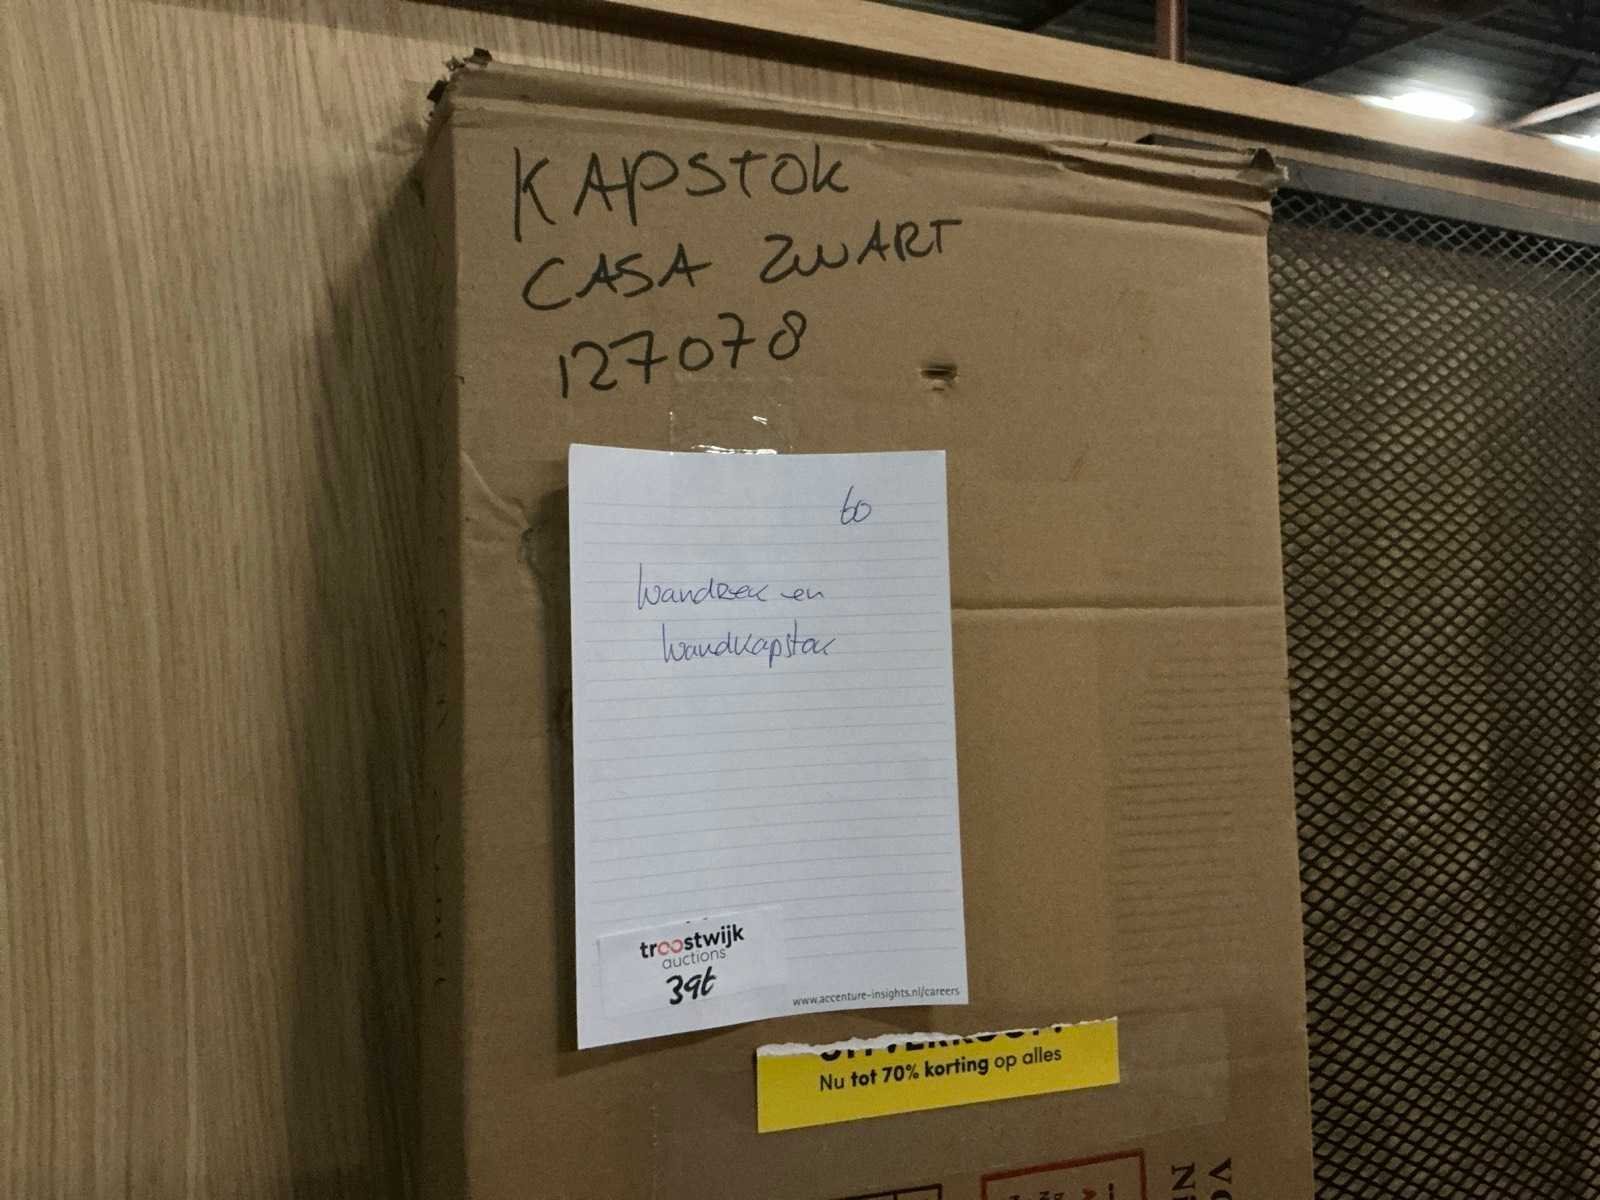 KAPSTOK
CASA ZWART
127078
60
Wandrek en
Wandkapstok
troostwijk
auctions
39t
www.accenture-insights.nl/careers
Nu tot 70% korting op alles